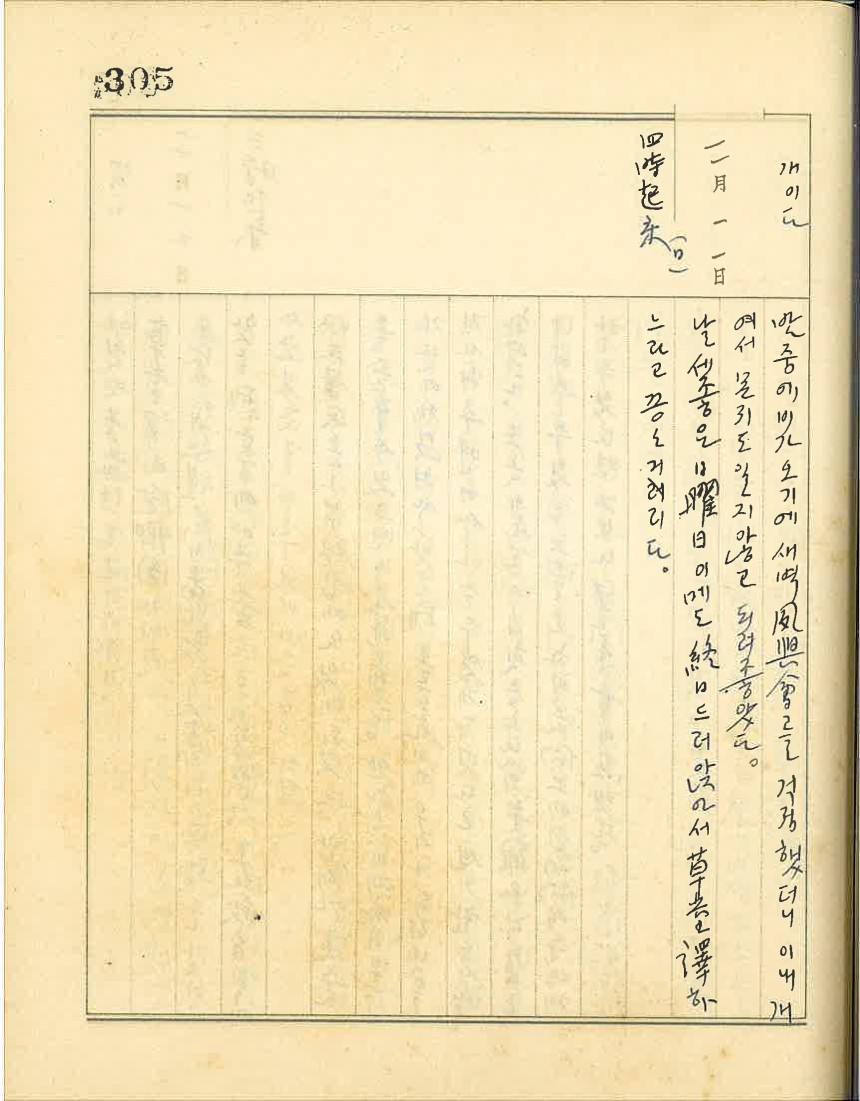 305
개이다
一一月 一一日
(日)
四時起床
밤중에 비가 오기에 새벽 夙興會를 걱정했더니 이내 개
여서 몬지도 일지 않고 되려 좋았다。
날세 좋은 日曜日이메도 終日 드러앉아서 草堂 譯하
느라고 끙〻거려리다。